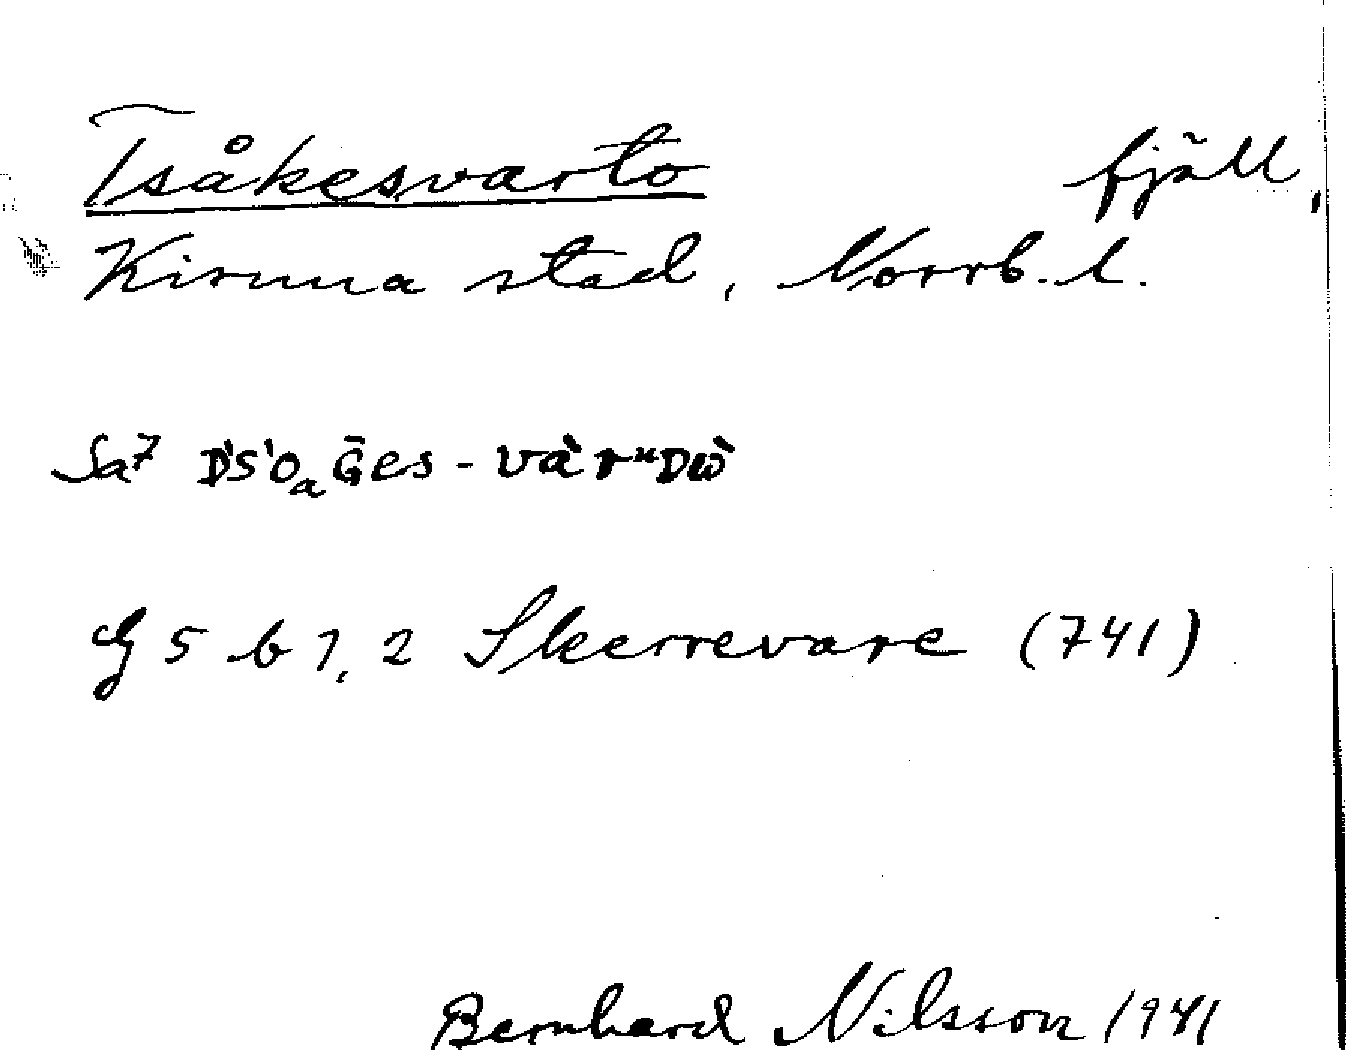 Tsåkesvarto fjäll,
Kiruna stad, Norrb. l.
Sa7
G 5 b 1, 2 Skerrevare (741)
Bernhard Nilsson 1941